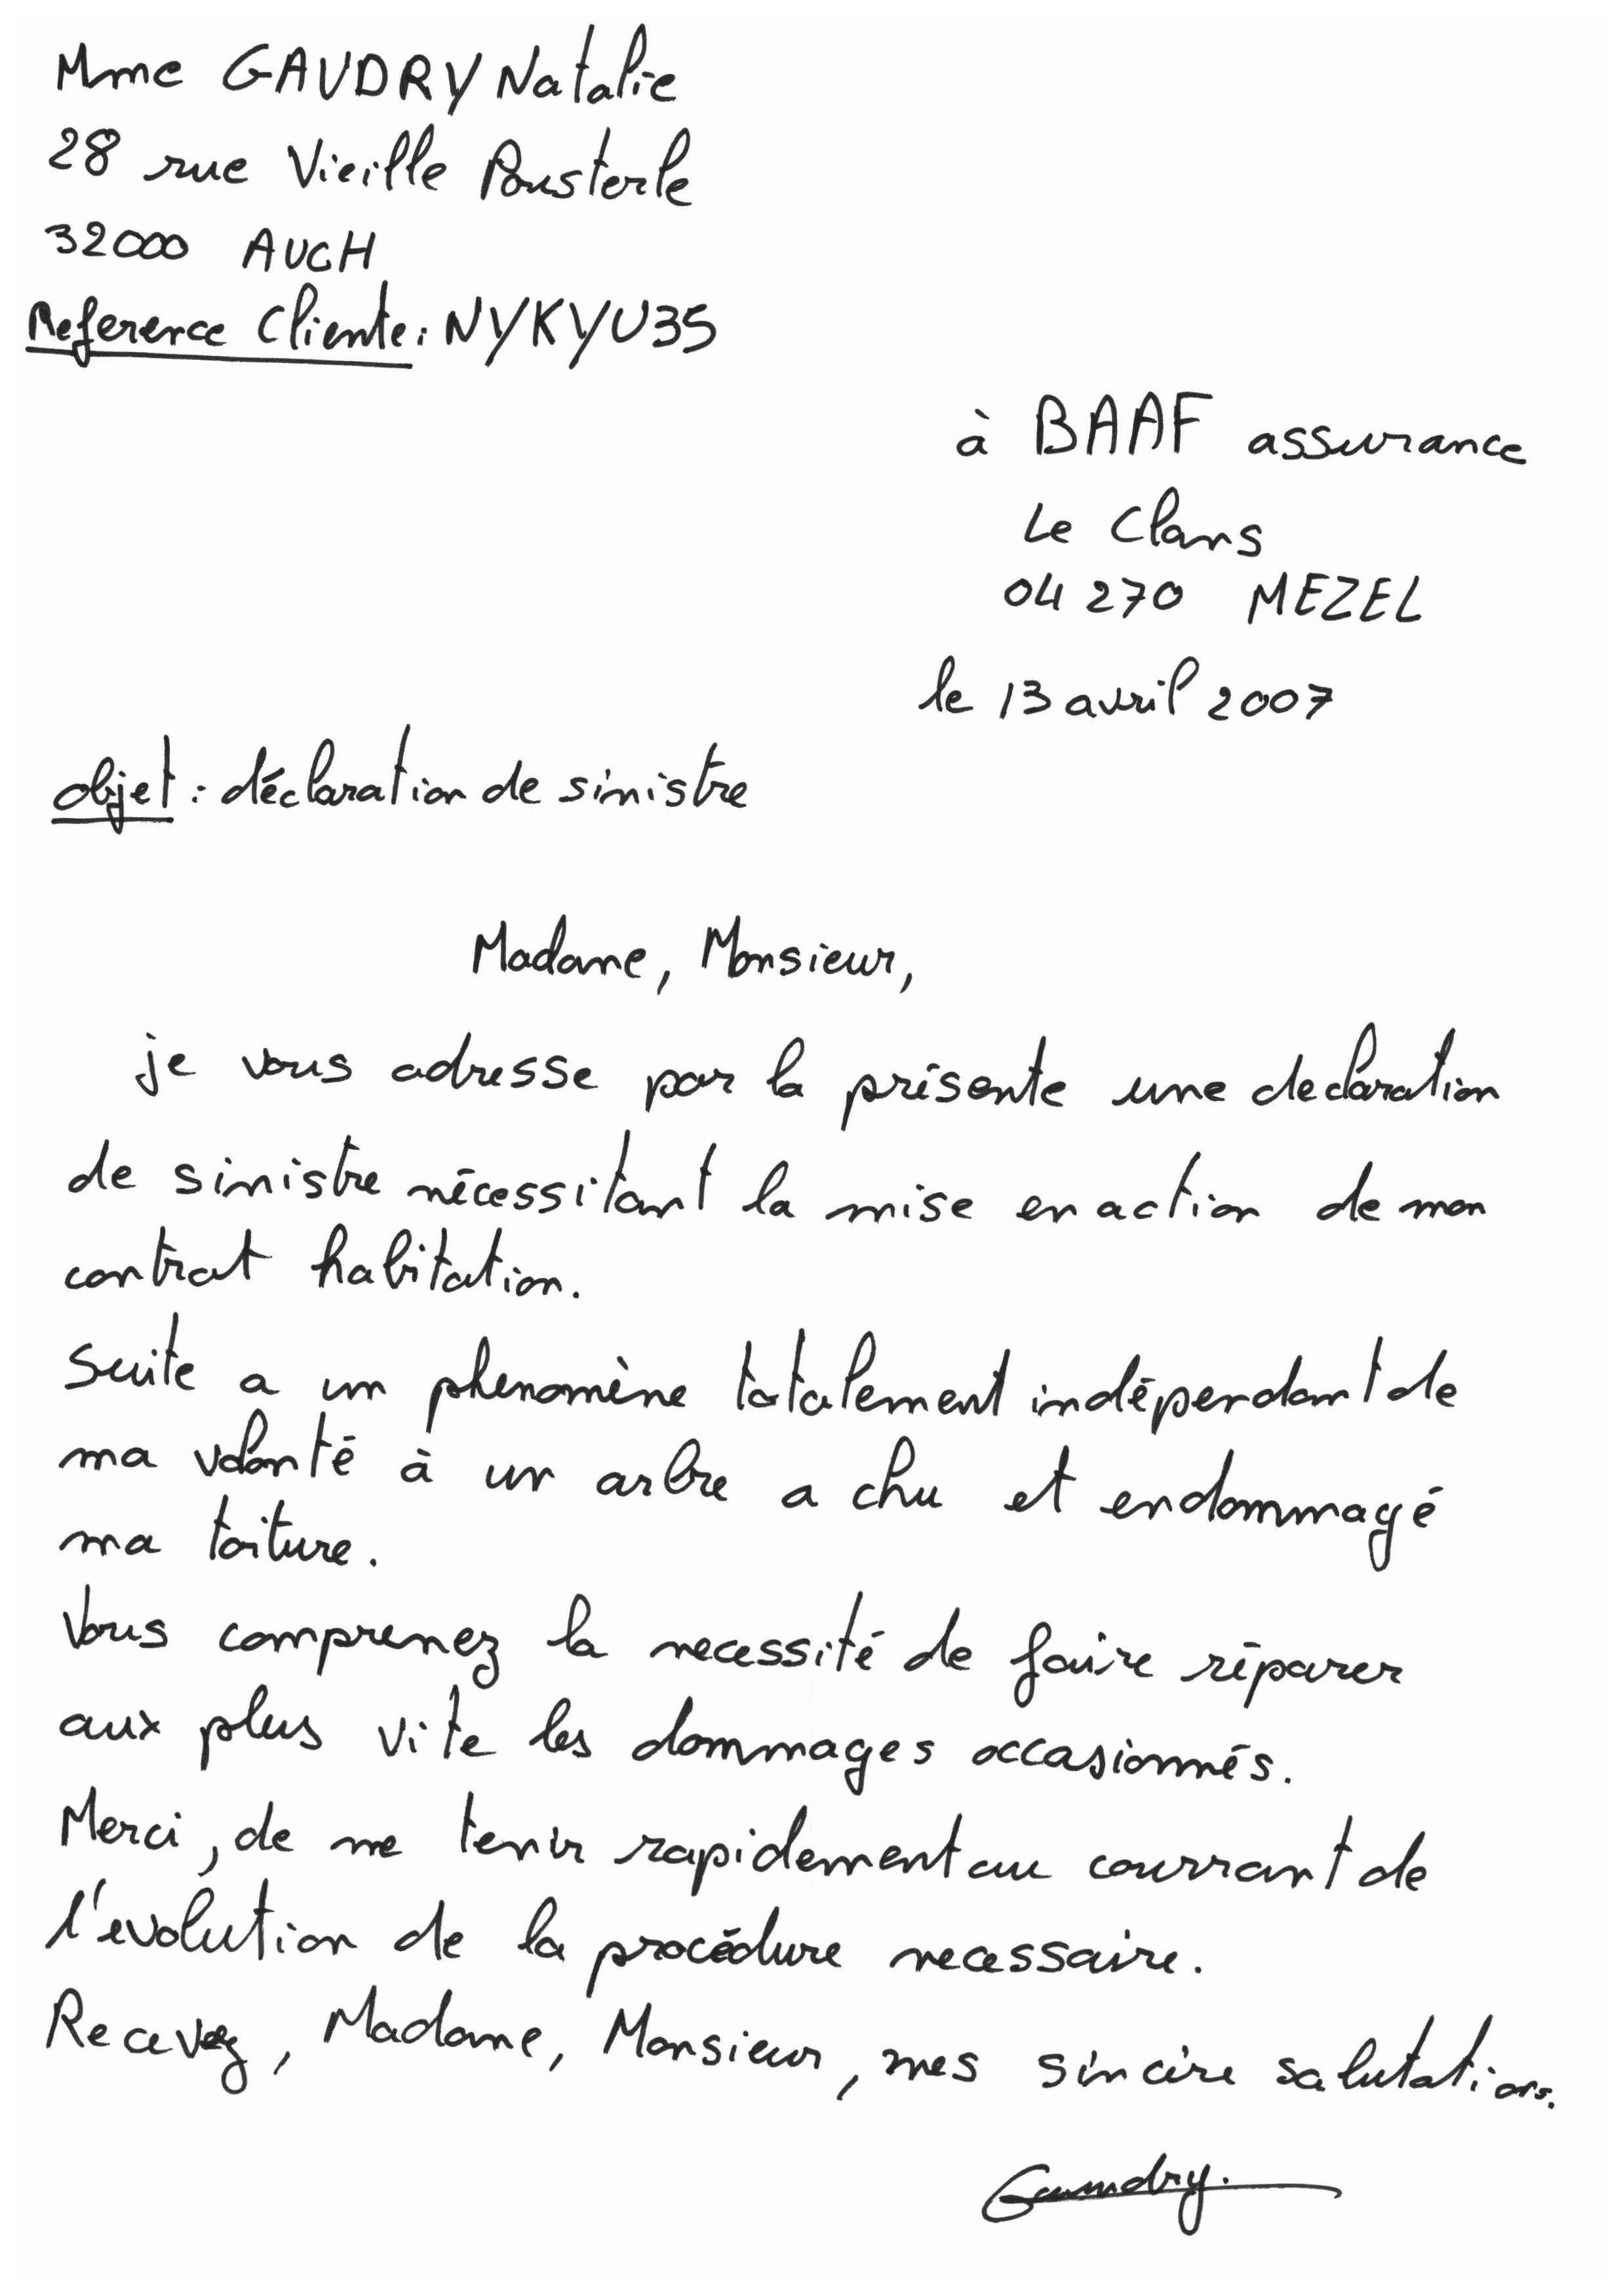 Mme GAUDRY Natalie
28 rue Vieille Pousterle
32000 AUCH
Reference Cliente : NYKYU35
à BAAF assurance
Le Clans
04 270 MEZEL
le 13 avril 2007
objet : déclaration de sinistre
Madame, Monsieur,
je vous adresse par la présente une declaration
de sinistre nécessitant la mise en action de mon
contrat habitation.
Suite a un phenomène totalement indépendant de
ma volonté à un arbre a chu et endommagé
ma toiture.
Vous comprenez la necessité de faire réparer
aux plus vite les dommages occasionnés.
Merci, de me tenir rapidement au courrant de
l'evolution de la procédure necessaire.
Recevez, Madame, Monsieur, mes sincère salutations.
Gaudry.